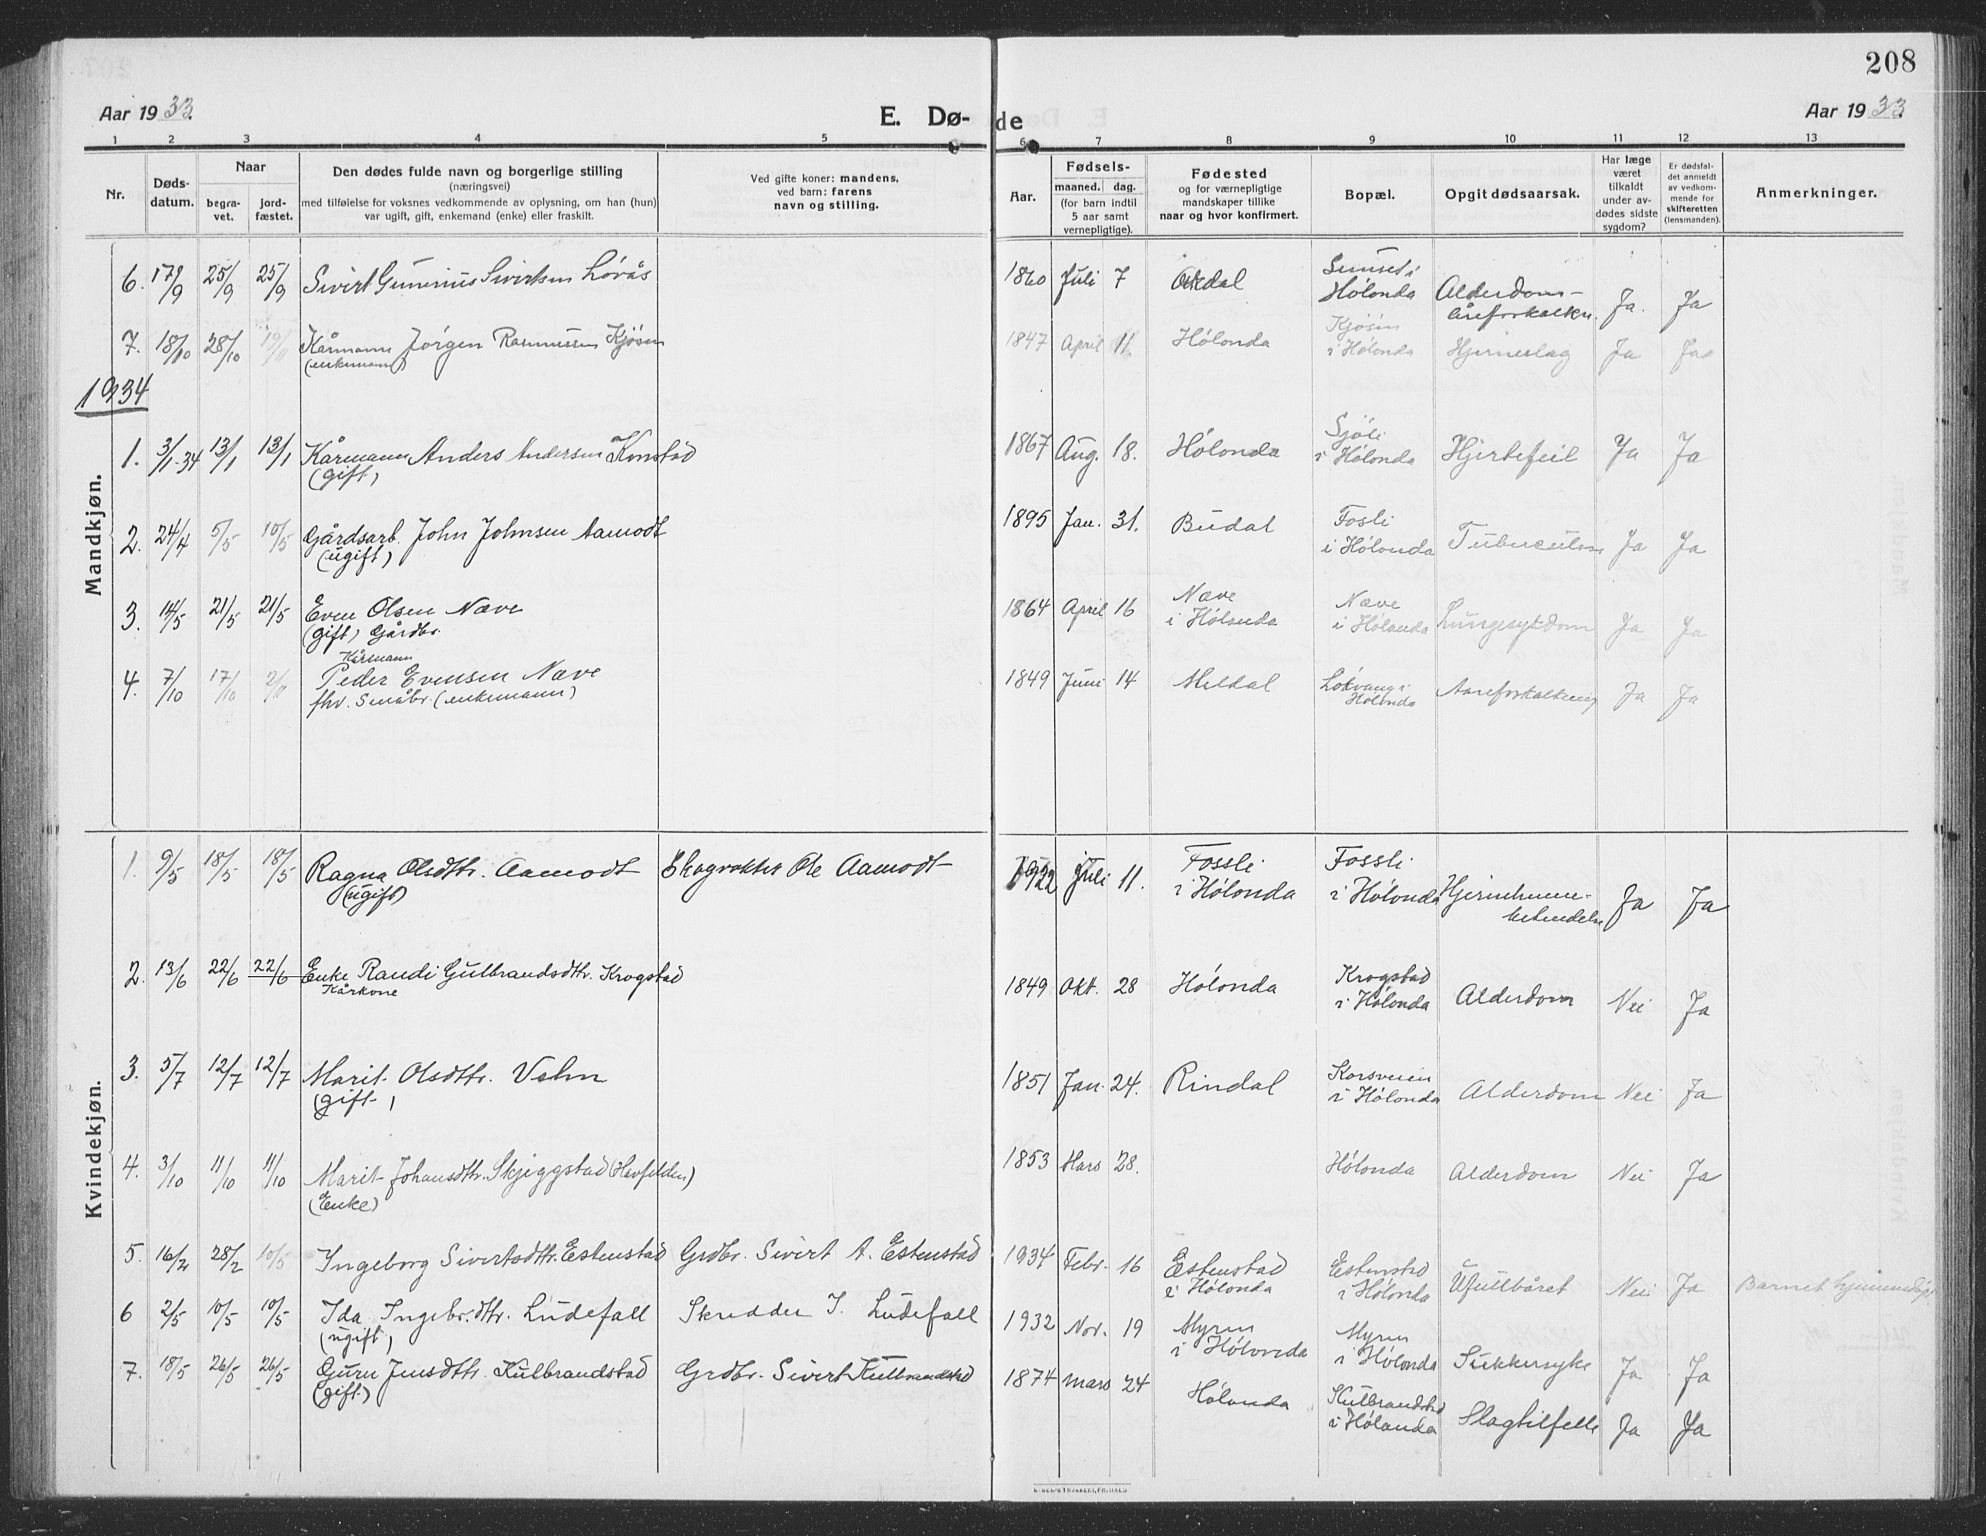 208
Aar 1933.
E. Dø-
de
Aar 1933.
1 2 3 4 5 6 7 8 9 10 11 12 13
Nr.
Døds-
datum.
Naar
begra-
vet.
jord-
fæstet.
Den dødes fulde navn og borgerlige stilling
(næringsvei)
med tilføielse for voksnes vedkommende av oplysning, om han (hun)
var ugift, gift, enkemand (enke) eller fraskilt.
Ved gifte koner: mandens,
ved barn: farens
navn og stilling.
Aar.
Fødsels-
maaned. dag.
(for barn indtil
5 aar samt
vernepligtige).
Fødested
og for værnepligtige
mandskaper tillike
naar og hvor konfirmert.
Bopæl.
Opgit dødsaarsak.
Har læge
været
tilkaldt
under av-
dødes sidste
sygdom?
Er dødsfal-
det anmeldt
av vedkom-
mende for
skifteretten
(lensmanden).
Anmerkninger.
6. 17/9 25/9 25/9 Sivert Gunerius Sivertsen Løvås 1860 Juli 7 Orkdal
i Hølonda Alderdom-
åreforkalkn. Ja. Ja
7. 18/10 28/10 Kårmann Jørgen Rasmussen Kjøsen
(enkemann) 1847 April 11 Hølonda Kjøsen
i Hølonda Hjerneslag Ja Ja
1934
Mandkjøn.
1. 3/1-34 13/1 13/1 Kårmann Anders Andersen Konstad
(gift) 1867 Aug. 18. Hølonda Sjøli
i Hølonda Hjertefeil Ja Ja
2. 24/4 5/5 10/5 Gårdsarb. John Johnsen Aamodt
(ugift) 1895 Jan. 31. Budal Fosli
i Hølonda Tuberculose Ja Ja
3. 14/5 21/5 21/5 Even Olsen Næve
(gift) Gårdbr. 1864 April 16 Næve
i Hølonda Næve
i Hølonda Lungesykdom Ja Ja
Kårmann
4. 7/10 17/10 2/11 Peder Evensen Næve
fhv. Småbr. (enkemann) 1849 Juni 14 Meldal Løkvang i
Hølonda Aareforkalkning Ja Ja
Kvindekjøn.
1. 9/5 18/5 18/5 Ragna Olsdtr. Aamodt
(ugift) Skogvokter Ole Aamodt 1922 Juli 11. Fossli
i Hølonda Fossli
i Hølonda Hjernehinne-
betendelse Ja Ja
2. 13/6 22/6 22/6 Enke Randi Gulbrandsdtr. Krogstad
Kårkone 1849 Okt. 28 Hølonda Krogstad
i Hølonda Alderdom Nei Ja
3. 5/7 12/7 12/7 Marit Olsdtr. Vehn
(gift) 1851 Jan. 24. Rindal Korsveien
i Hølonda Alderdom Nei Ja
4. 3/10 11/10 11/10 Marit Johansdtr. Skjeggstad
(Enke) 1853 Mars 28. Hølonda Alderdom Nei Ja
5. 16/2 28/2 10/5 Ingeborg Sivertsdtr. Estenstad Grdbr. Sivert A. Estenstad 1934 Febr. 16 Estenstad
i Hølonda Estenstad
i Hølonda Ufullbåret Nei Ja Barnet hjemmedøpt
6 2/5 10/5 10/5 Ida Ingebr.dtr. Ludefall
(ugift) Skredder I. Ludefall 1932 Nov. 19 Myren
i Hølonda Myren
i Hølonda Sukkersyke Ja Ja
7. 18/5 26/5 26/5 Guru Jensdtr. Kulbrandstad
(gift) Grdbr. Sivert Kulbrandstad 1874 Mars 24 Hølonda Kulbrandstad
i Hølonda Slagtilfelle Ja Ja